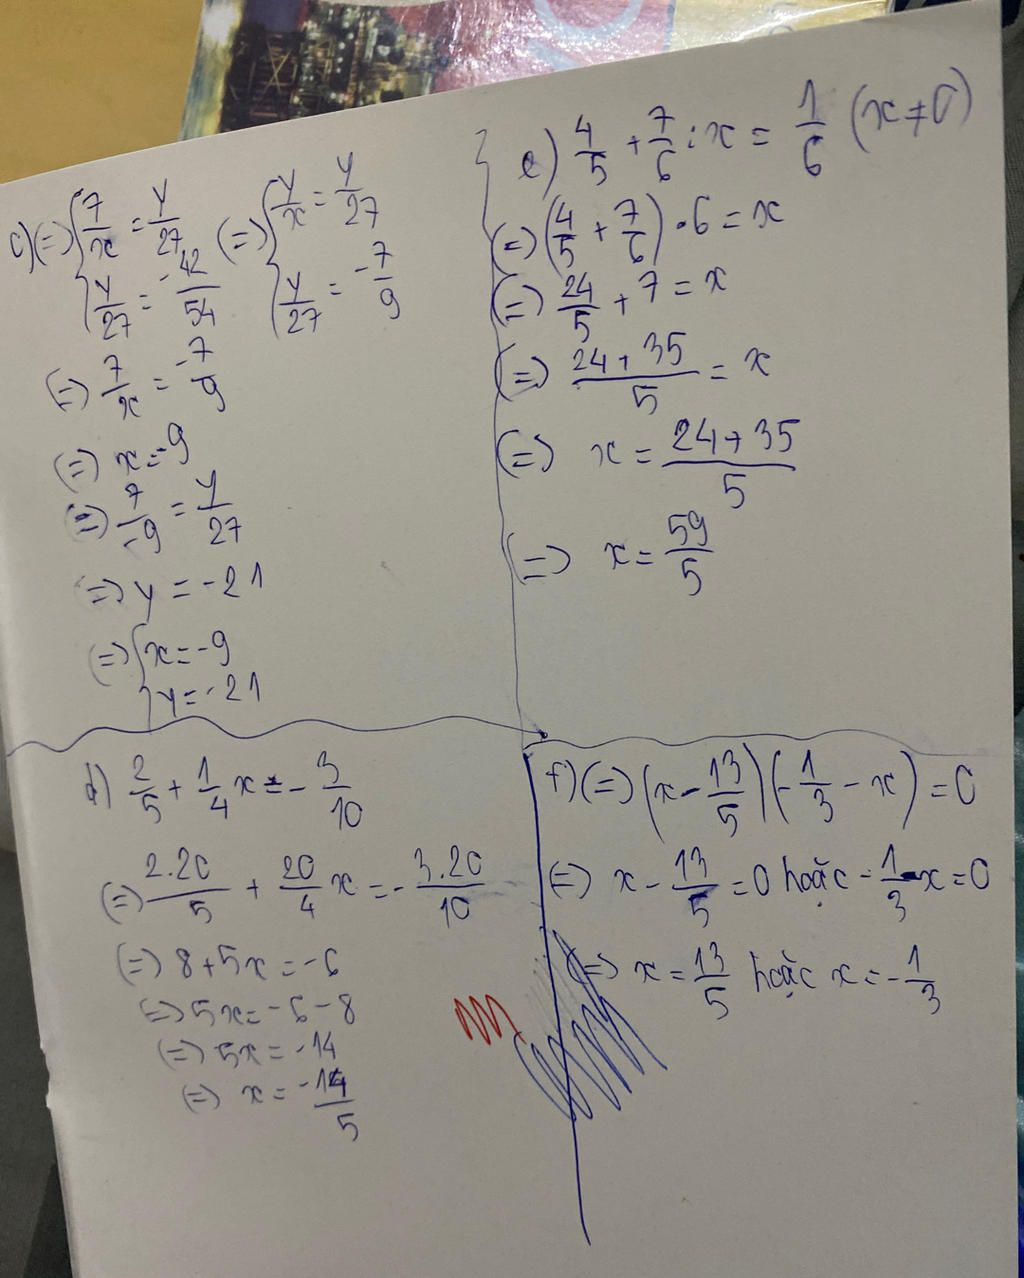 c) (=) { 7/x = y/27 (=) { y/x = y/27
{ y/27 = -42/54 { y/27 = -7/9
(=) 7/x = -7/9
(=) x = -9
(=) 7/-9 = y/27
(=) y = -21
(=) { x = -9
{ y = -21
e) 4/5 + 7/6 : x = 1/6 (x ≠ 0)
(=) (4/5 + 7/6) · 6 = x
(=) 24/5 + 7 = x
(=) (24 + 35)/5 = x
(=) x = (24 + 35)/5
(=) x = 59/5
d) 2/5 + 1/4 x = - 3/10
(=) 2.20/5 + 20/4 x = - 3.20/10
(=) 8 + 5x = -6
(=) 5x = -6 - 8
(=) 5x = -14
(=) x = -14/5
f) (=) (x - 13/5)(-1/3 - x) = 0
(=) x - 13/5 = 0 hoặc -1/3 - x = 0
(=) x = 13/5 hoặc x = -1/3